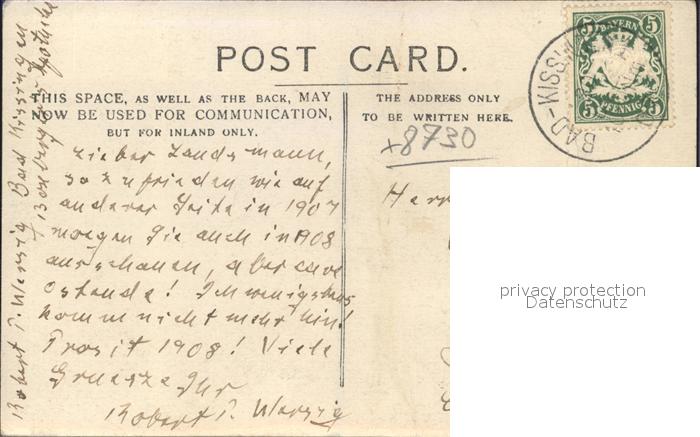 POST CARD.
THIS SPACE, AS WELL AS THE BACK, MAY
NOW BE USED FOR COMMUNICATION,
BUT FOR INLAND ONLY.
THE ADDRESS ONLY
TO BE WRITTEN HERE.
5 BAYERN 5
5 PFENNIG 5
BAD-KISSIN
+8730
Lieber Landsmann,
so zufrieden wie auf
anderer Seite in 1907
moegen Sie auch in 1908
ausschauen, aber cave
Ostende! Ich wenigstens
komm nicht mehr hin!
Prosit 1908! Viele
Gruesze Ihr
Robert P. Werzig
Robert P. Werzig Bad Kissingen
Herr
privacy protection
Datenschutz